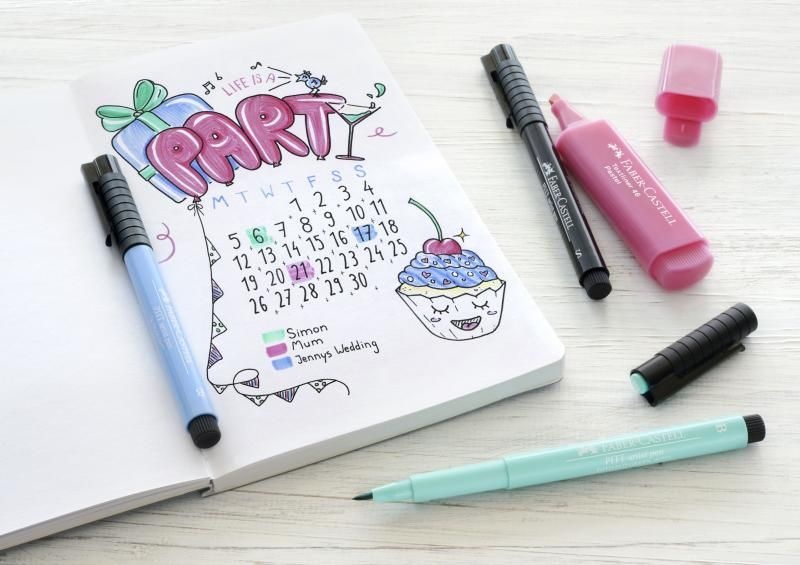 LIFE IS A
PARTY
M T W T F S S
1 2 3 4
5 6 7 8 9 10 11
12 13 14 15 16 17 18
19 20 21 22 23 24 25
26 27 28 29 30
Simon
Mum
Jennys Wedding
FABER-CASTELL
B
FABER-CASTELL
S
FABER-CASTELL
Textliner 46
Pastel
FABER-CASTELL
PITT artist pen
B